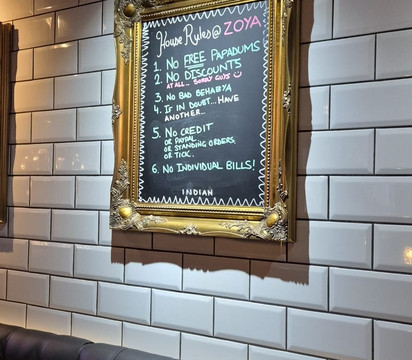 House Rules @ ZOYA
1. NO FREE PAPADUMS
2. NO DISCOUNTS
AT ALL... SORRY GUYS
3. NO BAD BEHABYA
4. IF IN DOUBT... HAVE
ANOTHER...
5. NO CREDIT
OR PAYPAL,
OR STANDING ORDERS,
OR TICK.
6. NO INDIVIDUAL BILLS!
INDIAN